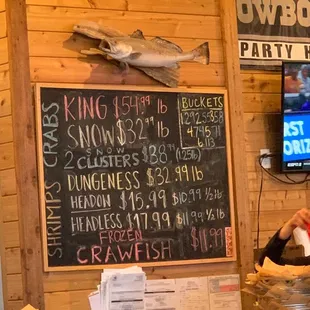 OWBO
PARTY H
SHRIMPS CRABS
KING $54.99 LB
SNOW $32.99 LB
2 SNOW CLUSTERS $38.99 (1.25lb)
DUNGENESS $32.99 LB
HEADON $15.99 LB $10.99 ½ lb
HEADLESS $17.99 LB $11.99 ½ lb
FROZEN
CRAWFISH $11.99
BUCKETS
ST
ORIZ